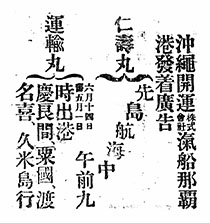 沖繩開運株式會社滊船那覇
港發着廣告
仁壽丸
先島航海中
運輸丸
六月十四日
舊五月一日
午前九
時出港
慶良間、粟國、渡
名喜、久米島行